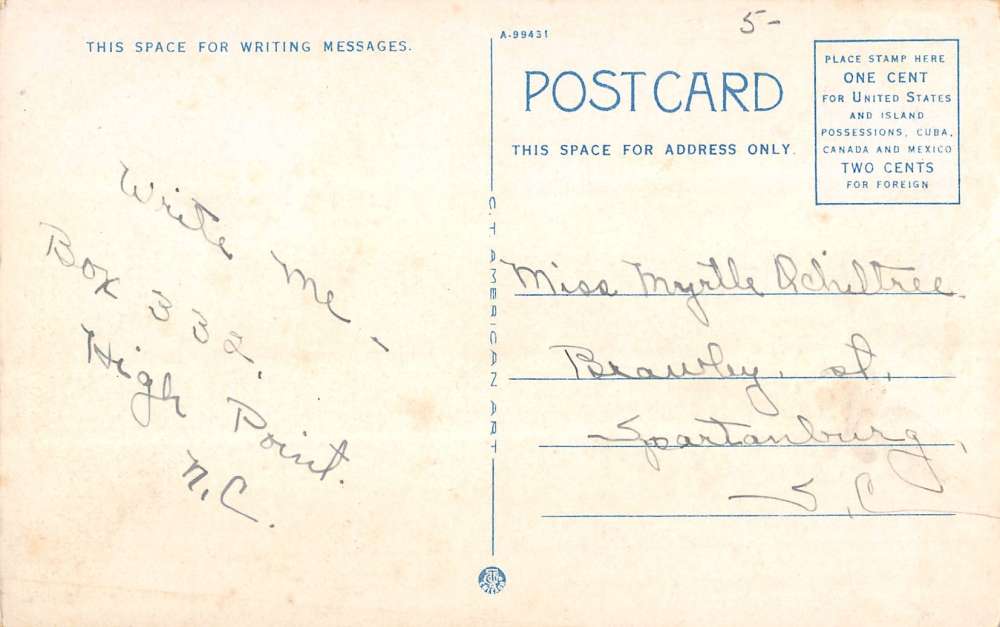 THIS SPACE FOR WRITING MESSAGES.
Write Me -
Box 332.
High Point.
N.C.
C.T. AMERICAN ART
A-99431
5-
POST CARD
THIS SPACE FOR ADDRESS ONLY.
PLACE STAMP HERE
ONE CENT
FOR UNITED STATES
AND ISLAND
POSSESSIONS, CUBA,
CANADA AND MEXICO
TWO CENTS
FOR FOREIGN
Miss Myrtle Ochiltree.
Brawley. st.
Spartanburg,
S.C